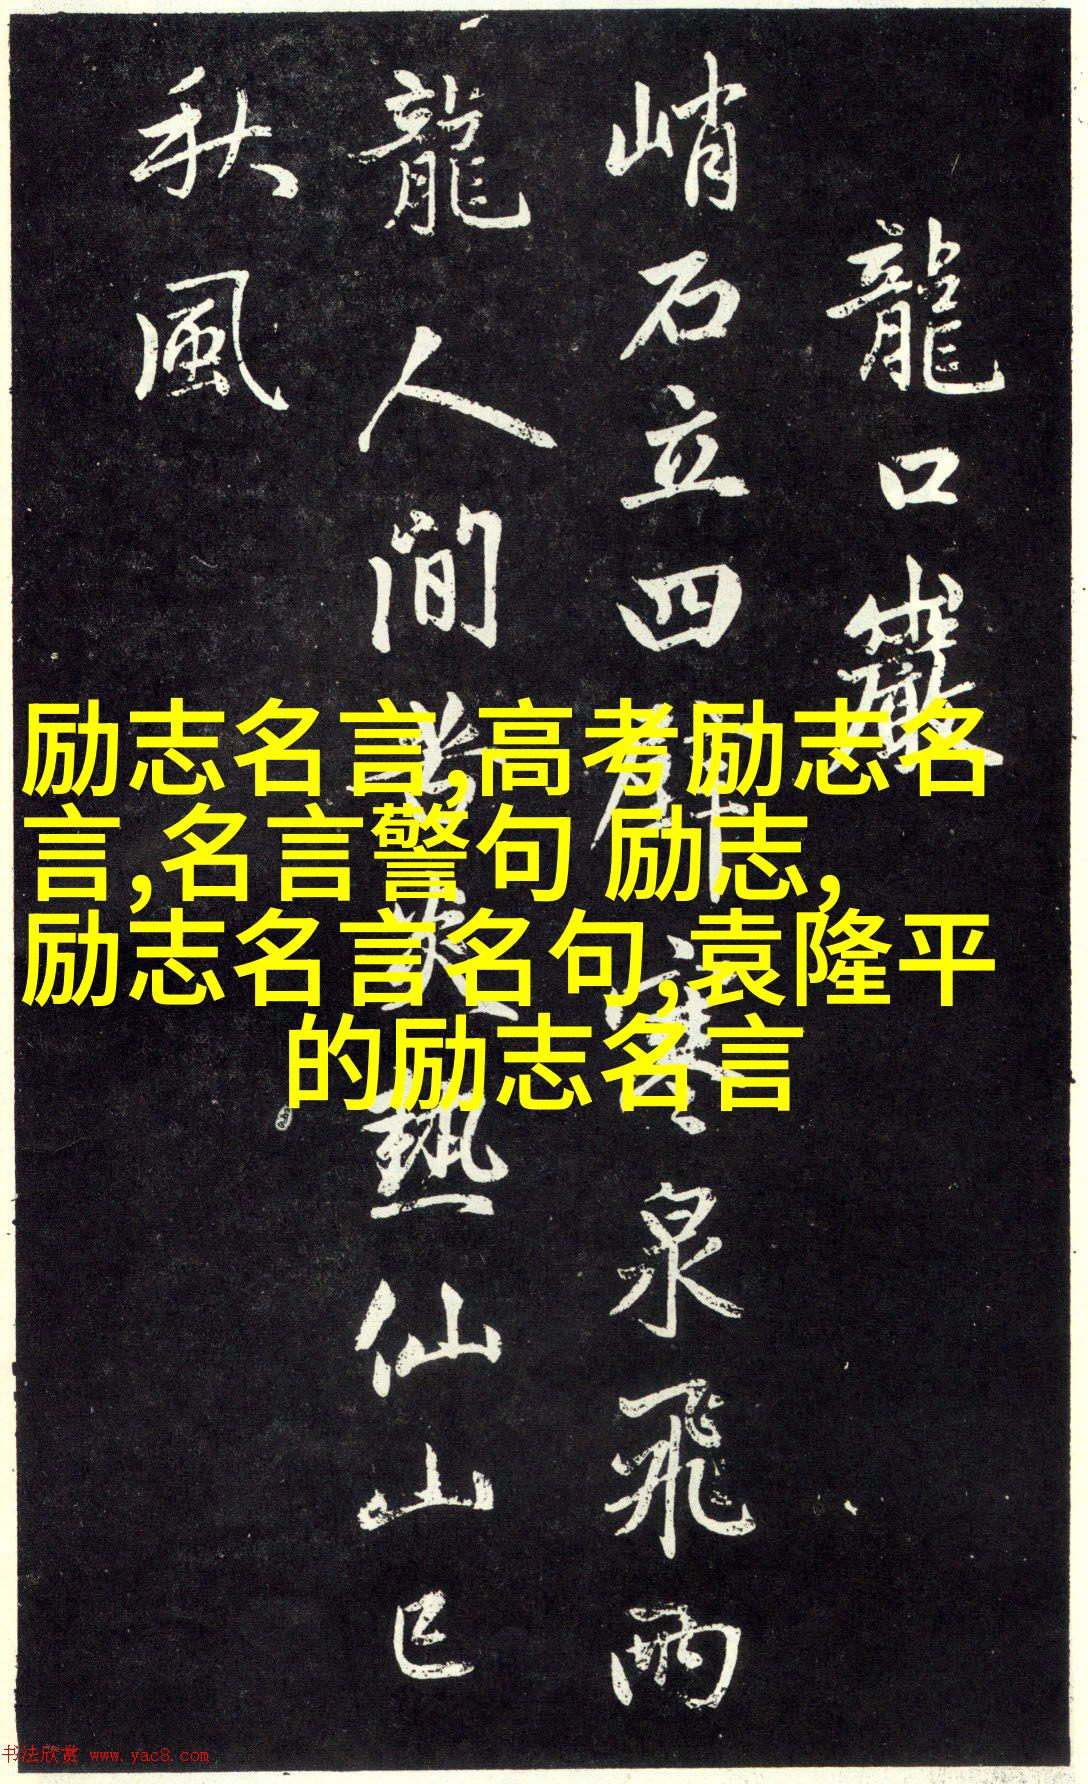 龍口巖
峭石立四壁寒泉飛兩
龍人間苦炎熱仙山已
秋風
励志名言,高考励志名
言,名言警句 励志,
励志名言名句,袁隆平
的励志名言
书法欣赏 www.yac8.com